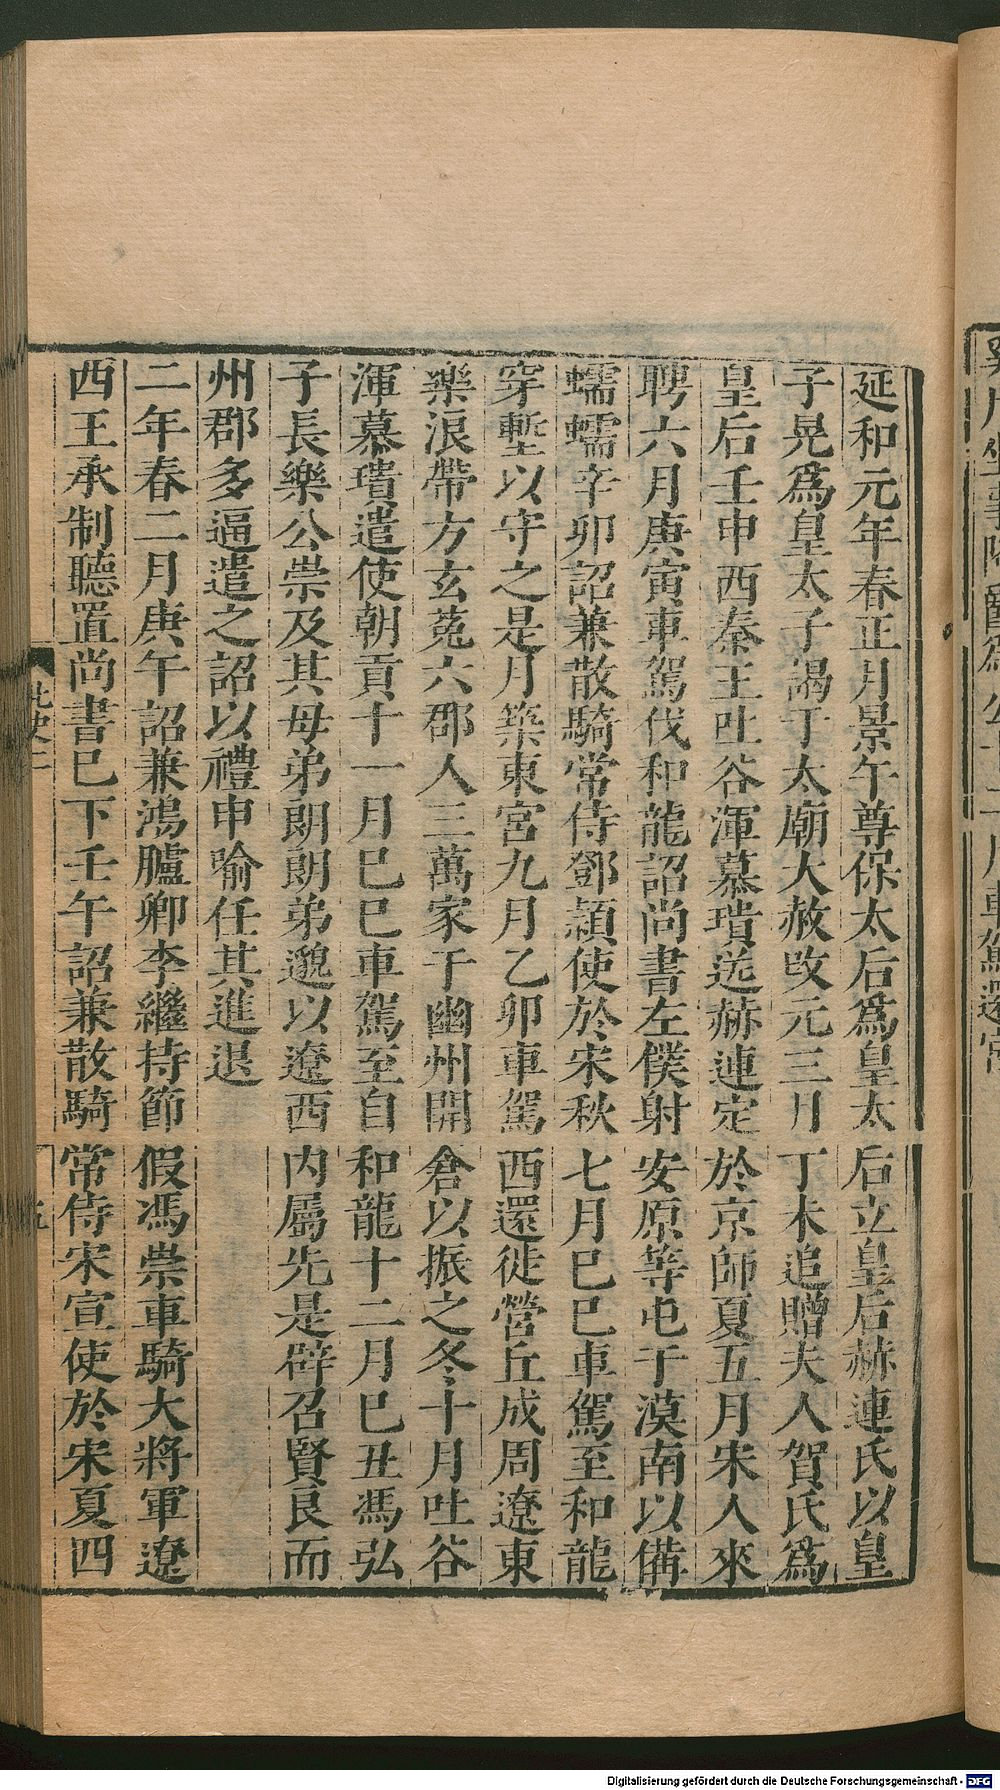 延和元年春正月景午尊保太后爲皇太后立皇后赫連氏以皇
子晃爲皇太子謁于太廟大赦改元三月丁未追贈夫人賀氏爲
皇后壬申西秦王吐谷渾慕璝送赫連定於京師夏五月宋人來
聘六月庚寅車駕伐和龍詔尚書左僕射安原等屯于漠南以備
蠕蠕辛卯詔兼散騎常侍鄧頴使於宋秋七月巳巳車駕至和龍
穿塹以守之是月築東宮九月乙卯車駕西還徙營丘成周遼東
樂浪帶方玄菟六郡人三萬家于幽州開倉以振之冬十月吐谷
渾慕璝遣使朝貢十一月巳巳車駕至自和龍十二月巳丑馮弘
子長樂公崇及其母弟朗朗弟邈以遼西内屬先是辟召賢良而
州郡多逼遣之詔以禮申喻任其進退
二年春二月庚午詔兼鴻臚卿李繼持節假馮崇車騎大將軍遼
西王承制聽置尚書巳下壬午詔兼散騎常侍宋宣使於宋夏四
北史二
五
Digitalisierung gefördert durch die Deutsche Forschungsgemeinschaft - DFG